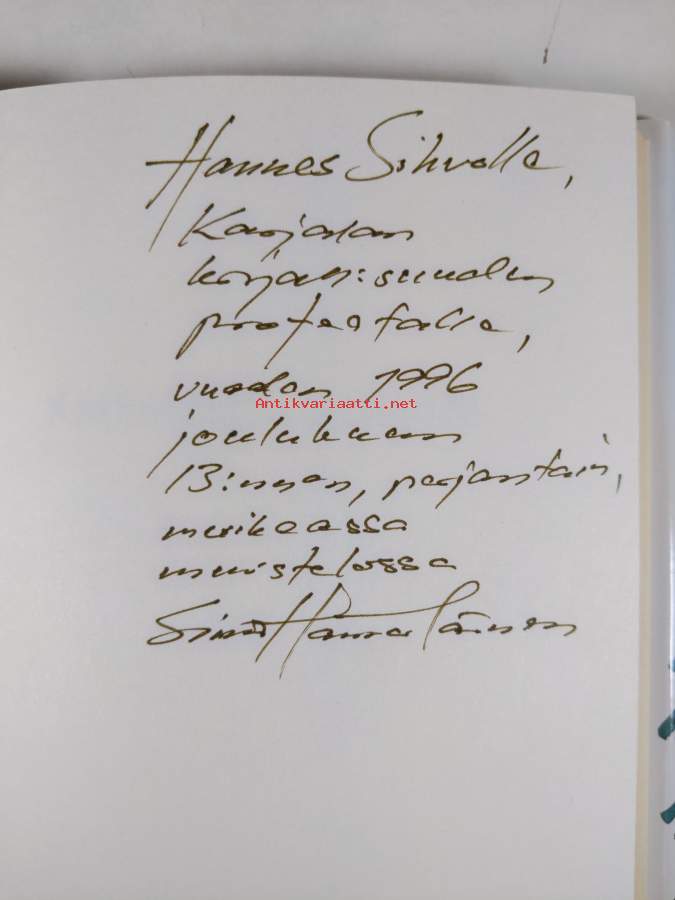 Hannes Sihvolle,
Karjalan
kirjallisuuden
profeetalle,
vuoden 1996
Antikvariaatti.net
joulukuun
13:nnen, perjantain,
meikeassa
muistelossa
Simo Hämäläinen